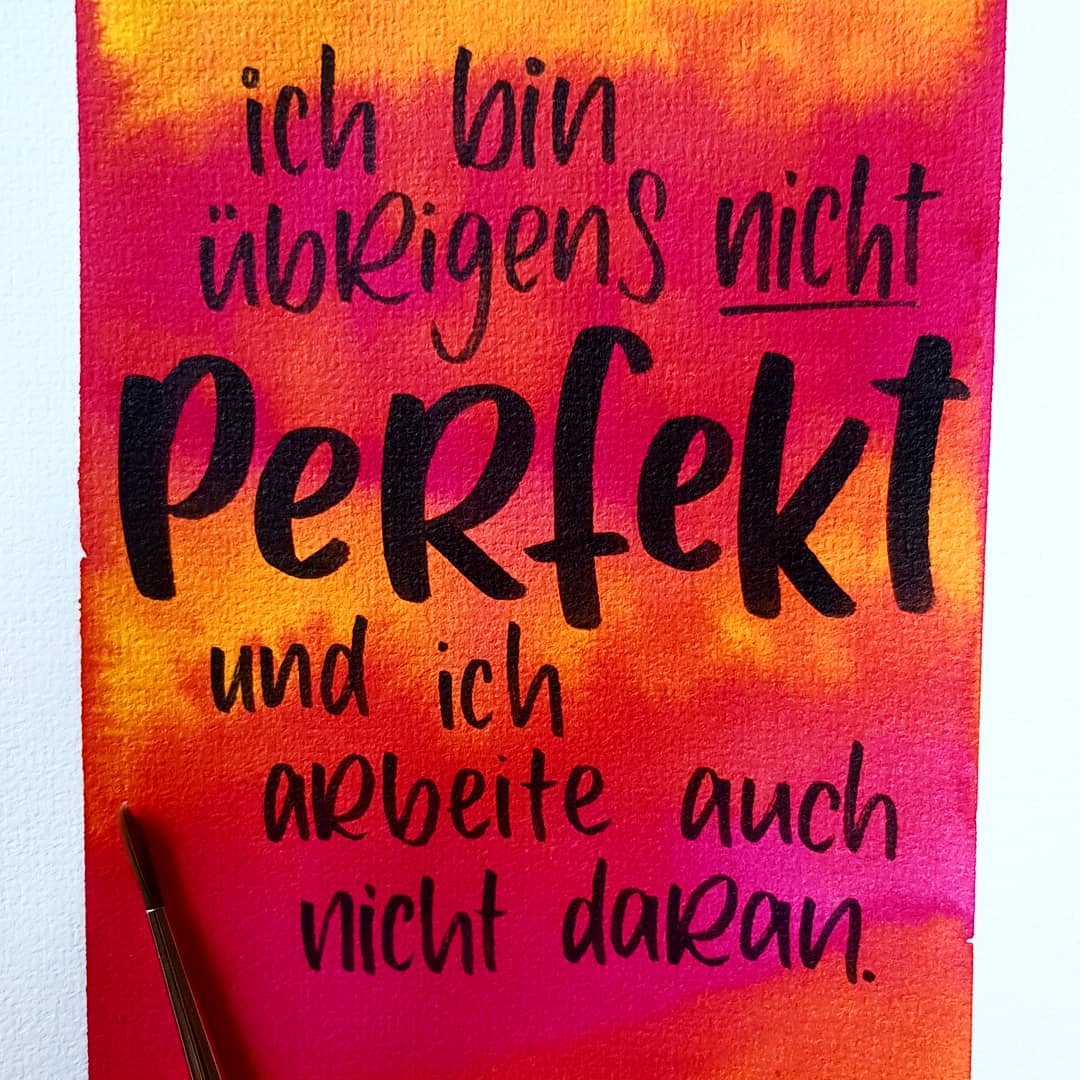 ich bin
übrigens nicht
perfekt
und ich
arbeite auch
nicht daran.